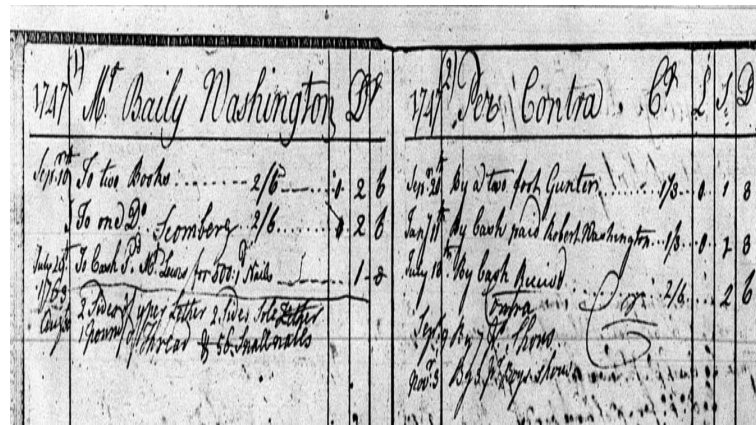 1747 1) Mr Baily Washington Dr
Sepr 10th To two Books ...... 2/6 ... 0 2 6
To one Do Scomberg 2/6 ...... 0 2 6
July 29th To Cash Pd Mr Lewis for 500: Nails 1
1763
Augst 2 Sides Upper Lether 2 Sides Sole Lether
1 Pound of Thread & 56 Small nails
1747 2) Per Contra Cr L S D
Sepr 20th By a two foot Gunter ..... 1/3 .. 0 1 3
Jany 11th By Cash paid Robert Washington .. 1/3 .. 0 1 3
July 16th By Cash Receivd 2/6 .. 2 6
Contra
Sept 9 By 7 Pr Shous
Novr 3 By 3 Pr Boys shous